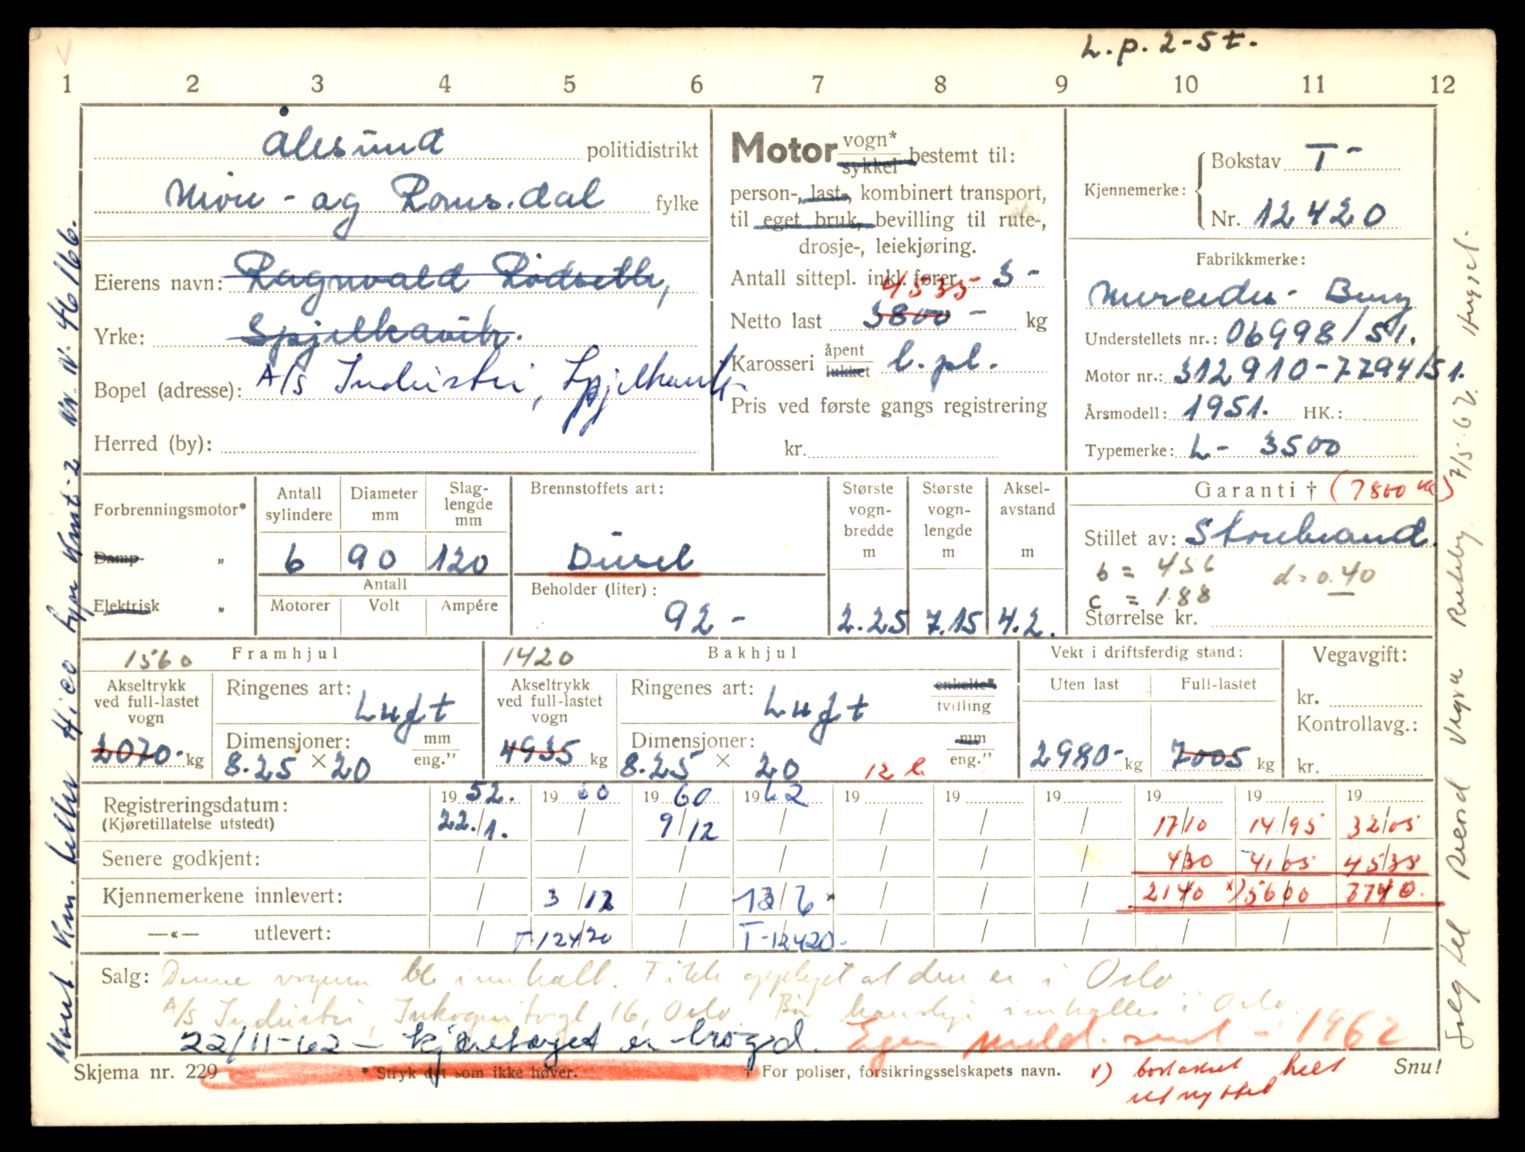 L.p. 2-5 t.
1 2 3 4 5 6 7 8 9 10 11 12
Ålesund politidistrikt
Møre - og Romsdal fylke
Eierens navn: Ragnvald Rødseth,
Yrke: Spjelkavik.
Bopel (adresse): A/s Industri, Spjelkavik
Herred (by):
Motor vogn* sykkel bestemt til:
person-, last-, kombinert transport,
til eget bruk, bevilling til rute-,
drosje-, leiekjøring.
Antall sittepl. inkl. fører 3 -
4535
Netto last 3800 - kg
Karosseri åpent lukket l.pl.
Pris ved første gangs registrering
kr.
Kjennemerke: Bokstav T-
Nr. 12420
Fabrikkmerke:
Mercedes - Benz
Understellets nr.: 06998/51.
Motor nr.: 312910-7794/51.
Årsmodell: 1951. HK.:
Typemerke: L- 3500
Forbrenningsmotor*
Damp "
Elektrisk "
Antall sylindere Diameter mm Slaglengde mm
6 90 120
Antall
Motorer Volt Ampére
Brennstoffets art:
Diesel
Beholder (liter):
92 -
Største vognbredde m Største vognlengde m Akselavstand m
2.25 7.15 4.2.
Garanti † (7800 kg)
Stillet av: Storebrand.
b = 456 d = 0.40
c = 1.88
Størrelse kr.
1560 Framhjul
Akseltrykk ved full-lastet vogn
2070- kg
Ringenes art: Luft
Dimensjoner: mm eng."
8.25 × 20
1420 Bakhjul
Akseltrykk ved full-lastet vogn
4935 kg
Ringenes art: Luft enkelte* tvilling
Dimensjoner: mm eng."
8.25 × 20 12 l.
Vekt i driftsferdig stand:
Uten last Full-lastet
2980- kg 7005 kg
Vegavgift:
kr.
Kontrollavg.:
kr.
Registreringsdatum: 1952. 1960 1960 1962 19 19 19 19 19 19
(Kjøretillatelse utstedt) 22./1. 9/12 1710 1495 3205
Senere godkjent: 430 4105 4535
Kjennemerkene innlevert: 3/12 13/6 2140 x) 5600 7740.
—«— utlevert: T-12420 T-12420-
Salg: Denne vognen ble innkalt. T ikk opplyst at den er i Oslo
A/s Industri, 16, Oslo. Bør innkalles i Oslo.
22/11-62 - kjøretøyet er Egen meld. sendt - 1962
Skjema nr. 229 * Stryk det som ikke høver. † For poliser, forsikringsselskapets navn. x) helt Snu!
utnyttet